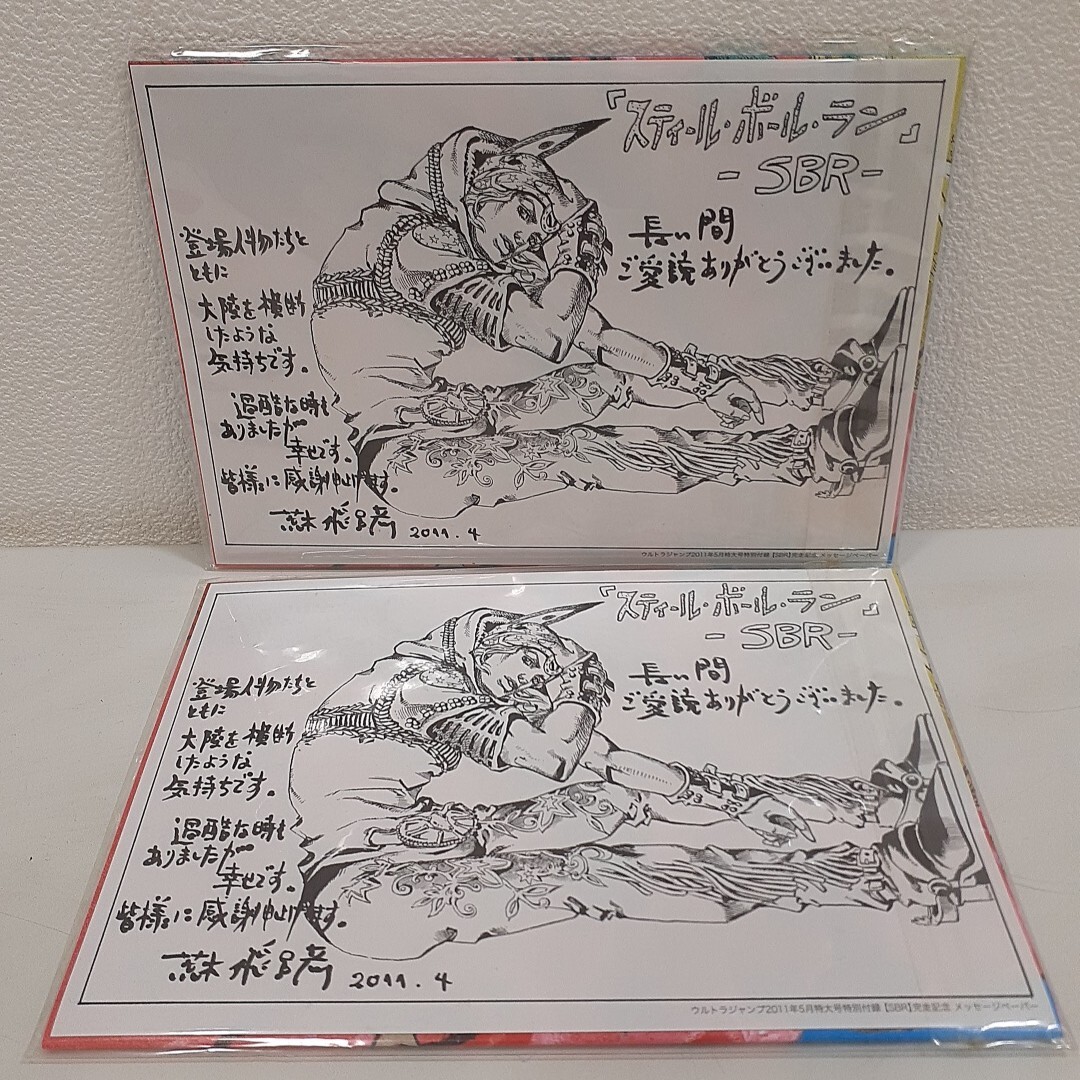 『スティール・ボール・ラン』
-SBR-
長い間
ご愛読ありがとうございました。
登場人物たちと
ともに
大陸を横断
したような
気持ちです。
過酷な時も
ありましたが
幸せです。
皆様に感謝申し上げます。
荒木飛呂彦 2011.4
ウルトラジャンプ2011年5月特大号特別付録【SBR】完走記念 メッセージペーパー
『スティール・ボール・ラン』
-SBR-
長い間
ご愛読ありがとうございました。
登場人物たちと
ともに
大陸を横断
したような
気持ちです。
過酷な時も
ありましたが
幸せです。
皆様に感謝申し上げます。
荒木飛呂彦 2011.4
ウルトラジャンプ2011年5月特大号特別付録【SBR】完走記念 メッセージペーパー